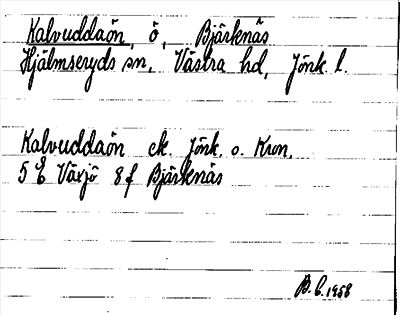 Kalvuddaön, ö, Bjärknäs
Hjälmseryds sn, Västra hd, Jönk. l.
Kalvuddaön ek. Jönk. o. Kron.
5 E Växjö 8 f Bjärknäs
B. C. 1958